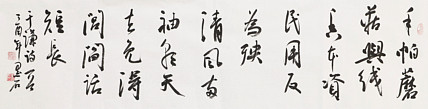 手帕蘑
菇與线
香本資
民用反
為殃
清風两
袖朝天
去免得
閭閻話
短長
于謙詩
丁酉年